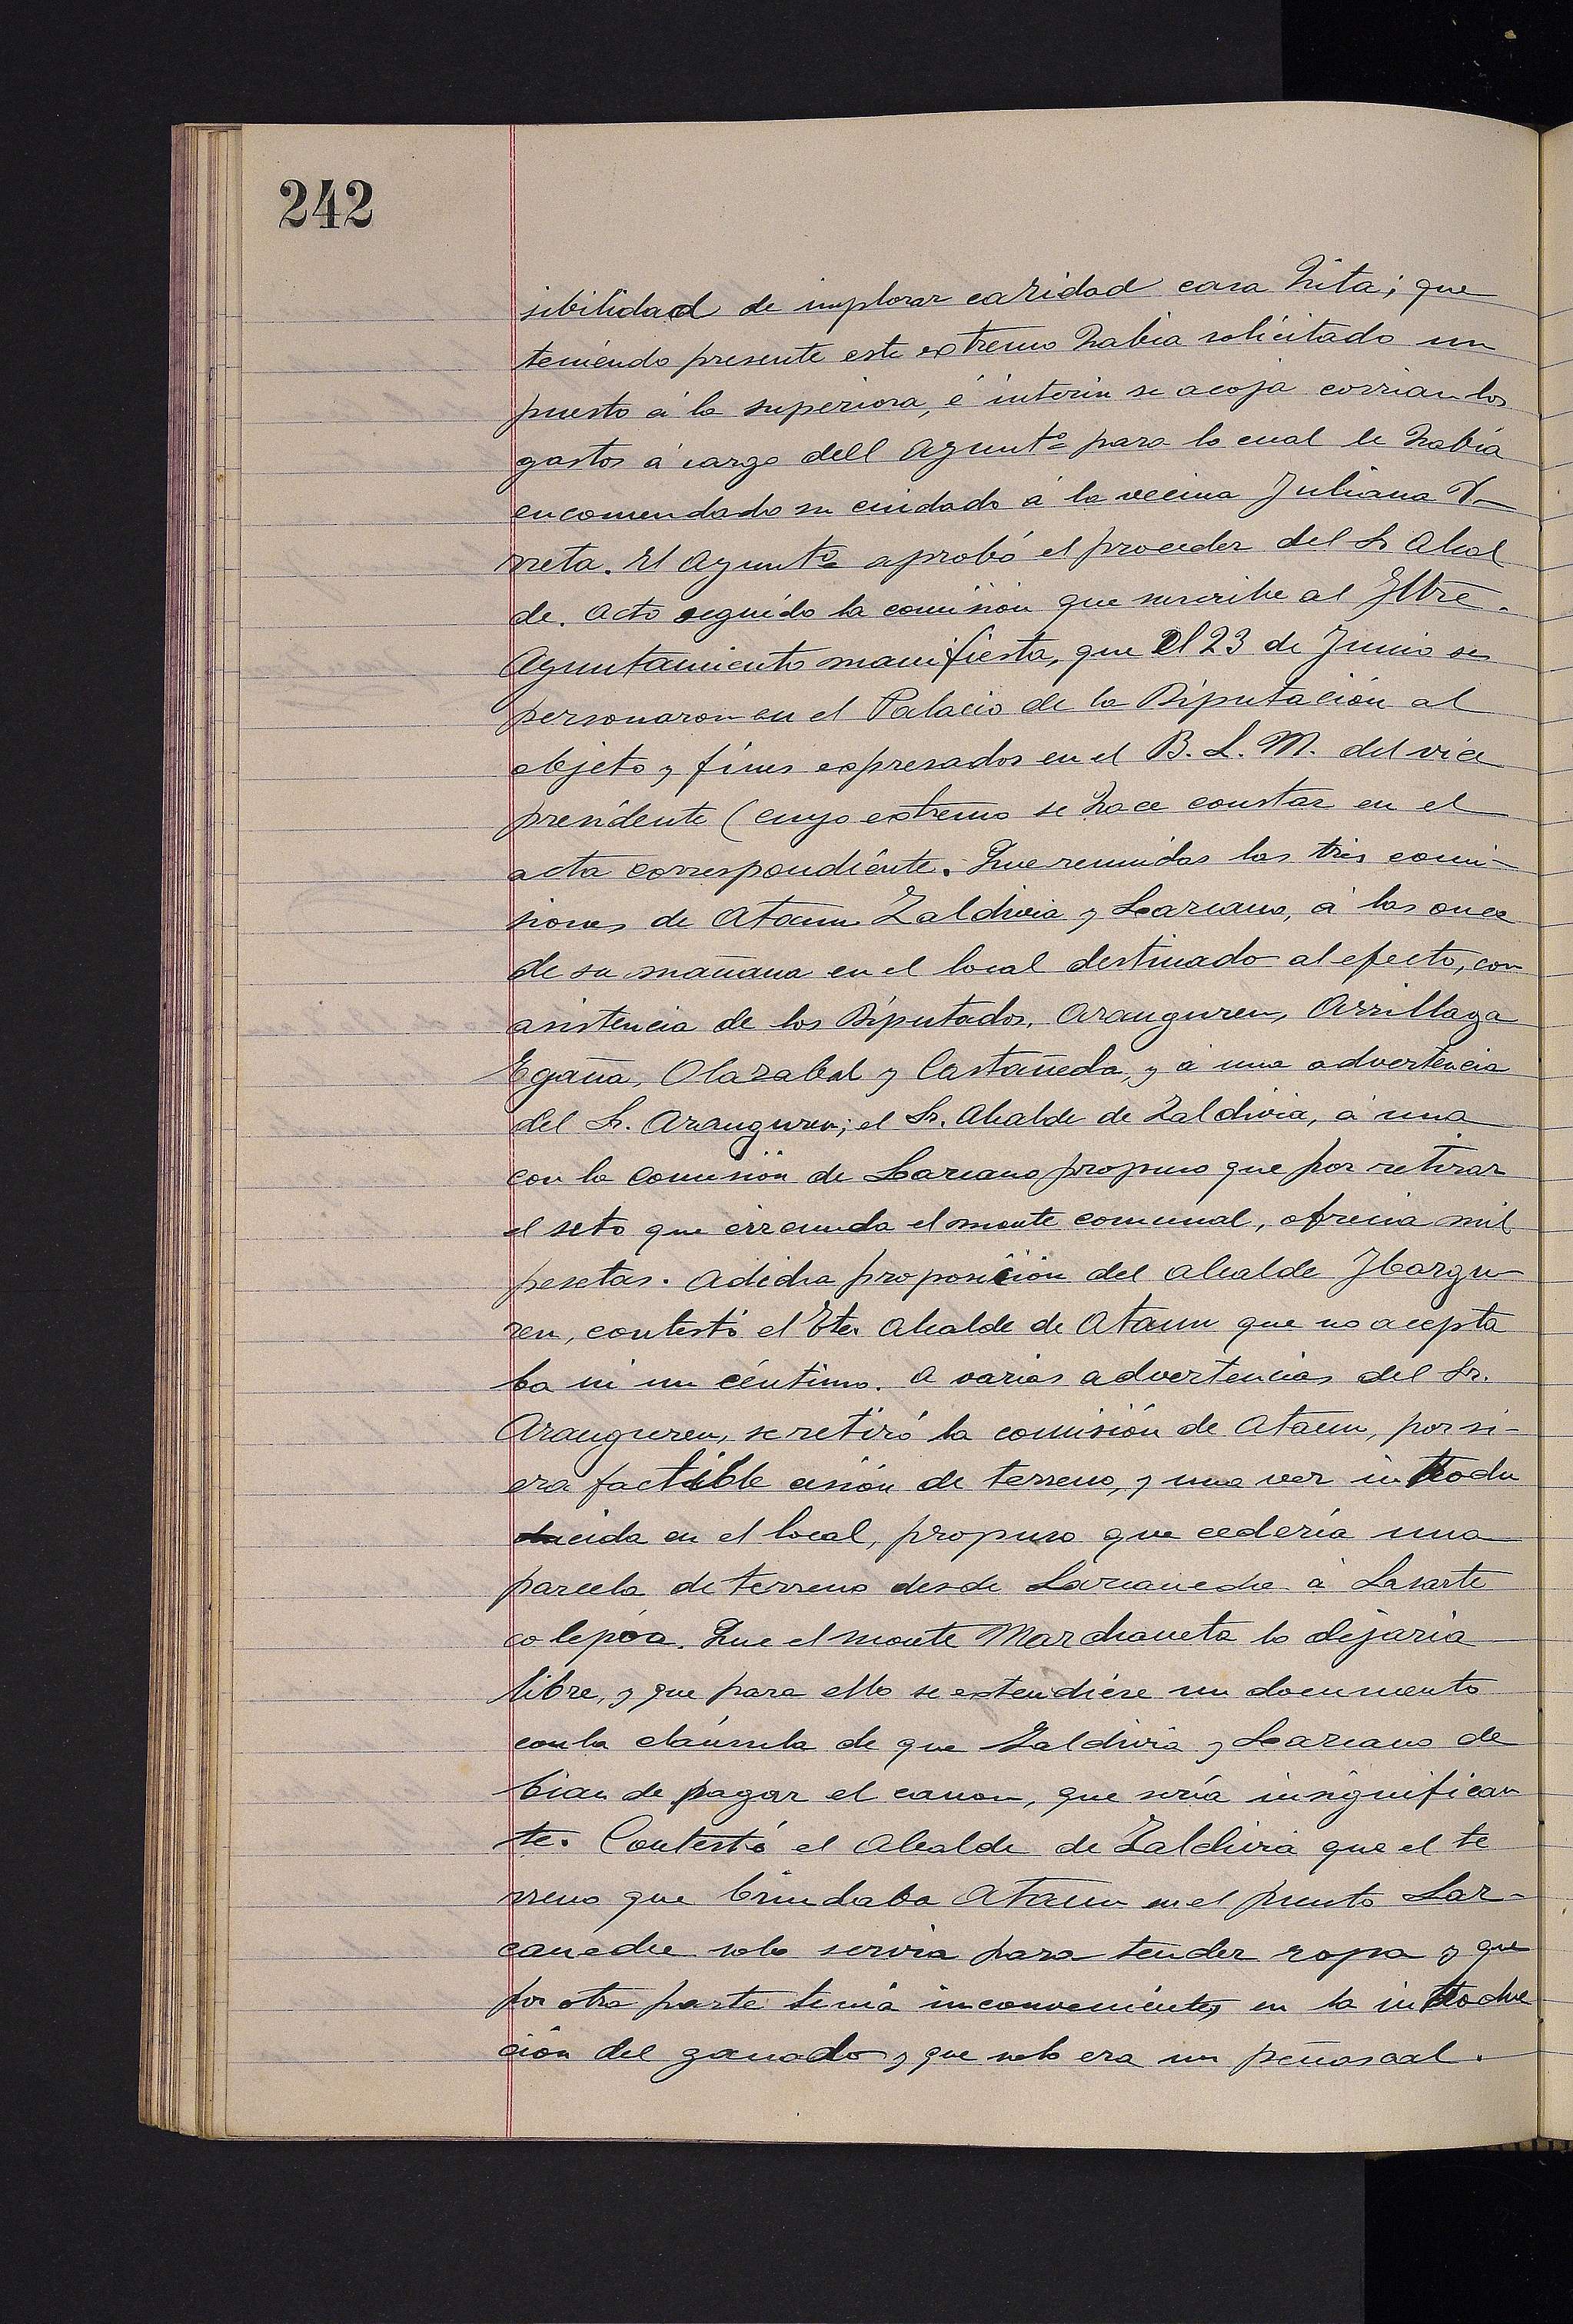 242
sibilidad de implorar caridad casa hita; que
teniendo presente este extremo habia solicitado un
puesto á la superiora, é interin se acoja corrian los
gastos á cargo dell Ayuntº para lo cual le había
encomendado su cuidado á la vecina Juliana U-
rreta. El Ayuntº aprobó el proceder del Sr Alcal
de. Acto seguido la comisión que suscribe al Iltre.
Ayuntamiento manifiesta, que el 23 de Junio se
personaron en el Palacio de la Diputación al
objeto y fines expresados en el B. L. M. del vice
presidente (cuyo extremo se hace constar en el
acta correspondiente. Que reunidos las tres comi-
siones de Ataun Zaldivia y Lazcano, á las once
de su mañana en el local destinado al efecto, con
asistencia de los Diputados, Aranguren, Arrillaga
Egaña, Olazabal y Castañeda, y á una advertencia
del Sr. Aranguren; el Sr. Alcalde de Zaldivia, á una
con la comisión de Lazcano propuso que por retirar
el seto que circunda el monte comunal, ofrecia mil
pesetas. A dicha proposición del alcalde Ibargu
ren, contestó el Ete. Alcalde de Ataun que no acepta
ba ni un céntimo. A varias advertencias del Sr.
Aranguren, se retiró la comisión de Ataun, por si-
era factible cesión de terreno, y una vez introdu
cida en el local, propuso que cedería una
parcela de terreno desde Lazcanedie á Lasarte
co lepóa. Que el monte Marchaueta lo dejaria
libre, y que para ello se extendiése un documento
con la cláusula de que Zaldivia y Lazcano de
bian de pagar el canon, que sería insignifican
te. Contestó el Alcalde de Zaldivia que el te
rreno que brindaba Ataun en el punto Laz-
canedie solo servia para tender ropa y que
por otra parte tenia inconvenientes en la introduc
ción del ganado y que solo era un peñascal.